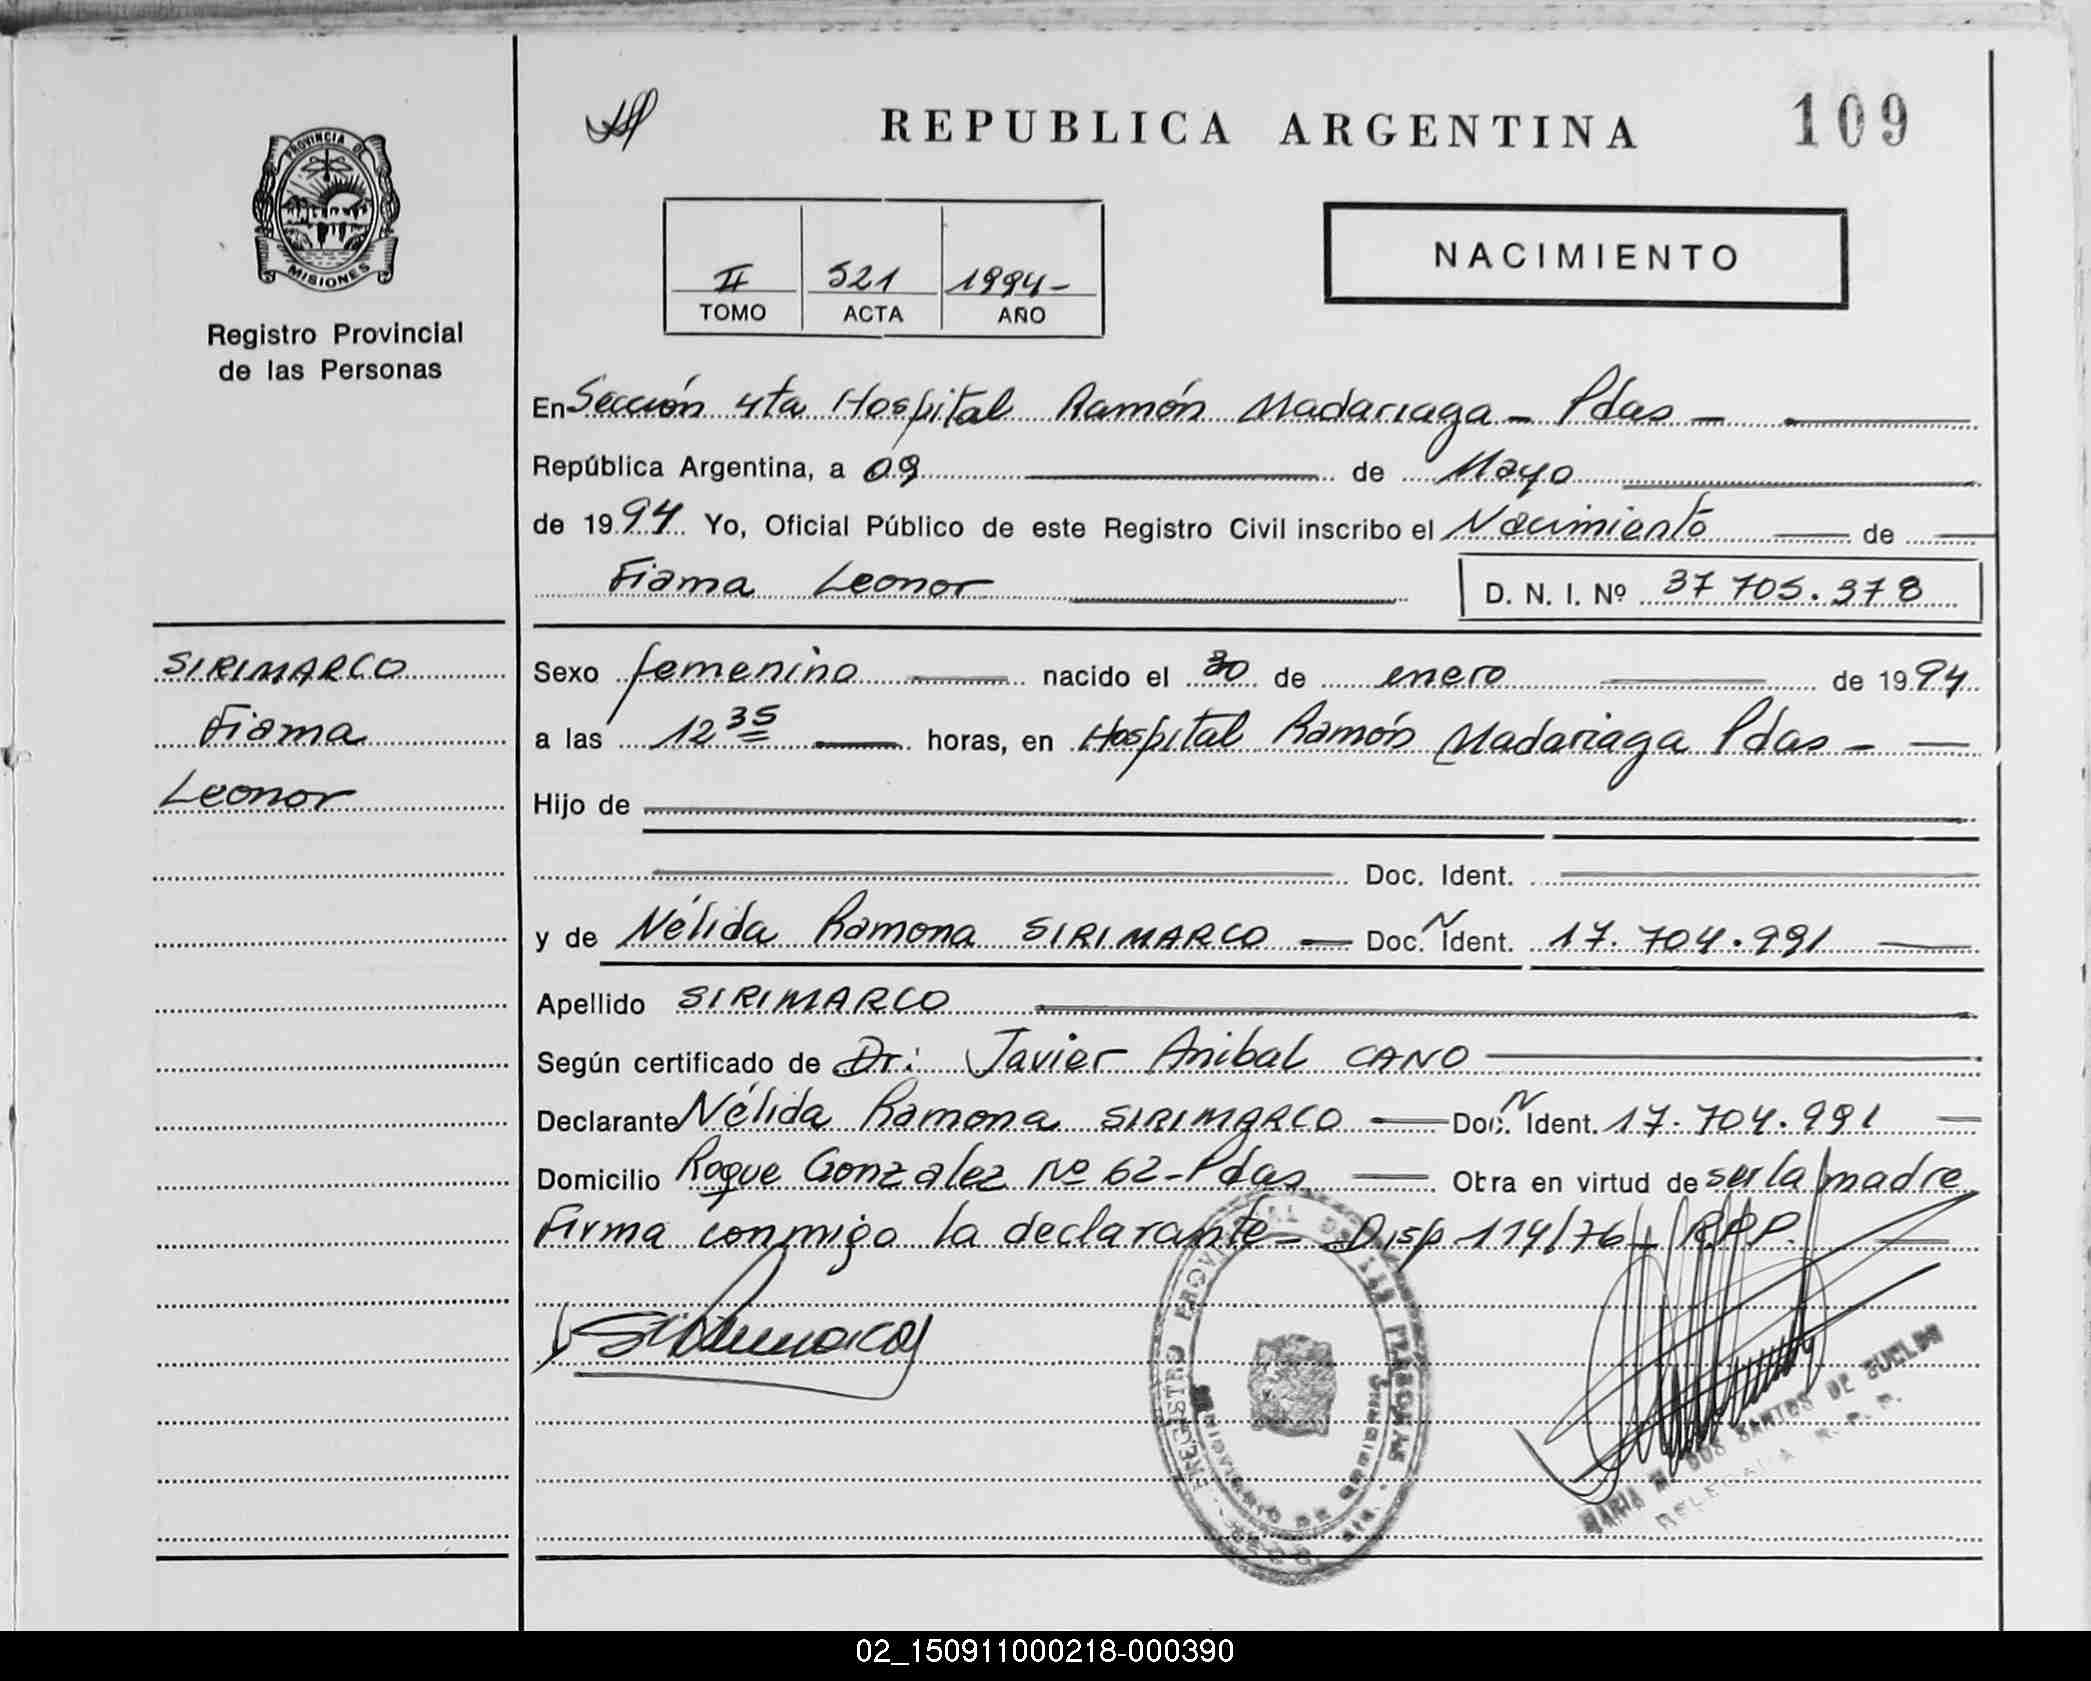 REPUBLICA ARGENTINA
109
PROVINCIA DE
MISIONES
Registro Provincial
de las Personas
II 521 1994-
TOMO ACTA AÑO
NACIMIENTO
En Sección 4ta Hospital Ramón Madariaga - Pdas -
República Argentina, a 09 de Mayo
de 1994 Yo, Oficial Público de este Registro Civil inscribo el Nacimiento de
Fiama Leonor D. N. I. Nº 37 705.378
SIRIMARCO
Fiama
Leonor
Sexo femenino nacido el 30 de enero de 1994
a las 12 35 horas, en Hospital Ramón Madariaga Pdas -
Hijo de
Doc. Ident.
y de Nélida Ramona SIRIMARCO Doc. N Ident. 17.704.991
Apellido SIRIMARCO
Según certificado de Dr: Javier Anibal CANO
Declarante Nélida Ramona SIRIMARCO Doc. N Ident. 17.704.991
Domicilio Roque Gonzalez Nº 62-Pdas Obra en virtud de ser la madre
Firma conmigo la declarante - Disp 114/76 - R.P.P.
Sirimarco
REGISTRO PROVINCIAL DE LAS PERSONAS
MARIA M. DOS SANTOS DE
DELEGADA R. P. P.
02_150911000218-000390